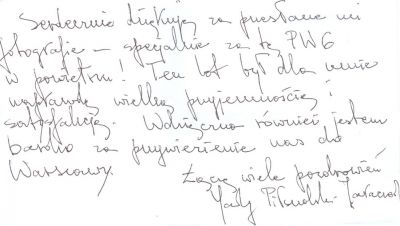 Serdecznie dziękuję za przesłane mi
fotografie – specjalnie za tę PW6
w powietrzu! Ten lot był dla mnie
naprawdę wielką przyjemnością i
satysfakcją. Wdzięczna również jestem
bardzo za przywiezienie nas do
Warszawy.
Łączę wiele pozdrowień
Piłsudska-Jaraczewska